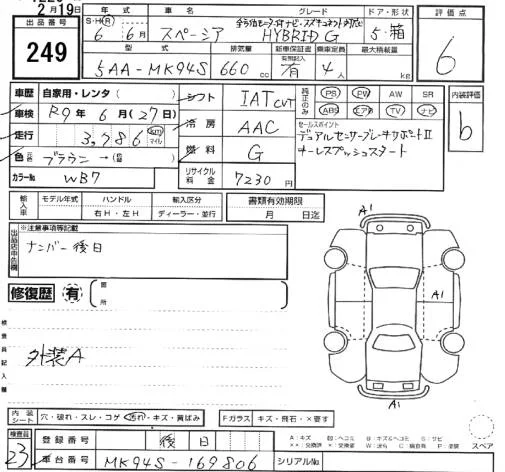 2月19日
出品番号
249
年式 車名 グレード ドア・形状
S・H・R 6年 6月 スペーシア HYBRID G 5・箱
型式 排気量 新車保証書 有無記入 乗車定員 最大積載量
5AA-MK94S 660cc 有 4人 kg
評価点
6
車歴 自家用・レンタ( )
車検 R9年 6月(27日)
走行 3,786 km マイル
色 元色 ブラウン→(色替)
カラーNo WB7
シフト IAT CVT
冷房 AAC
燃料 G
リサイクル料金 7230円
純正のみ
PS PW AW SR
ABS エアB TV ナビ
セールスポイント
デュアルセンサーブレーキサポートII
キーレスプッシュスタート
内装評価
b
輸入車 モデル年式 ハンドル 輸入区分
右H・左H ディーラー・並行
書類有効期限
月 日迄
出品店申告欄
※注意事項等記載
ナンバー後日
修復歴 有 箇所
検査員記入欄
外装A
A1
A1
A1
内装シート 穴・破れ・スレ・コゲ 汚れ・キズ・黄ばみ
Fガラス キズ・飛石・×要す
検査員
23
登録番号 後日
車台番号 MK94S-169806
シリアルNo.
A:キズ
スペア